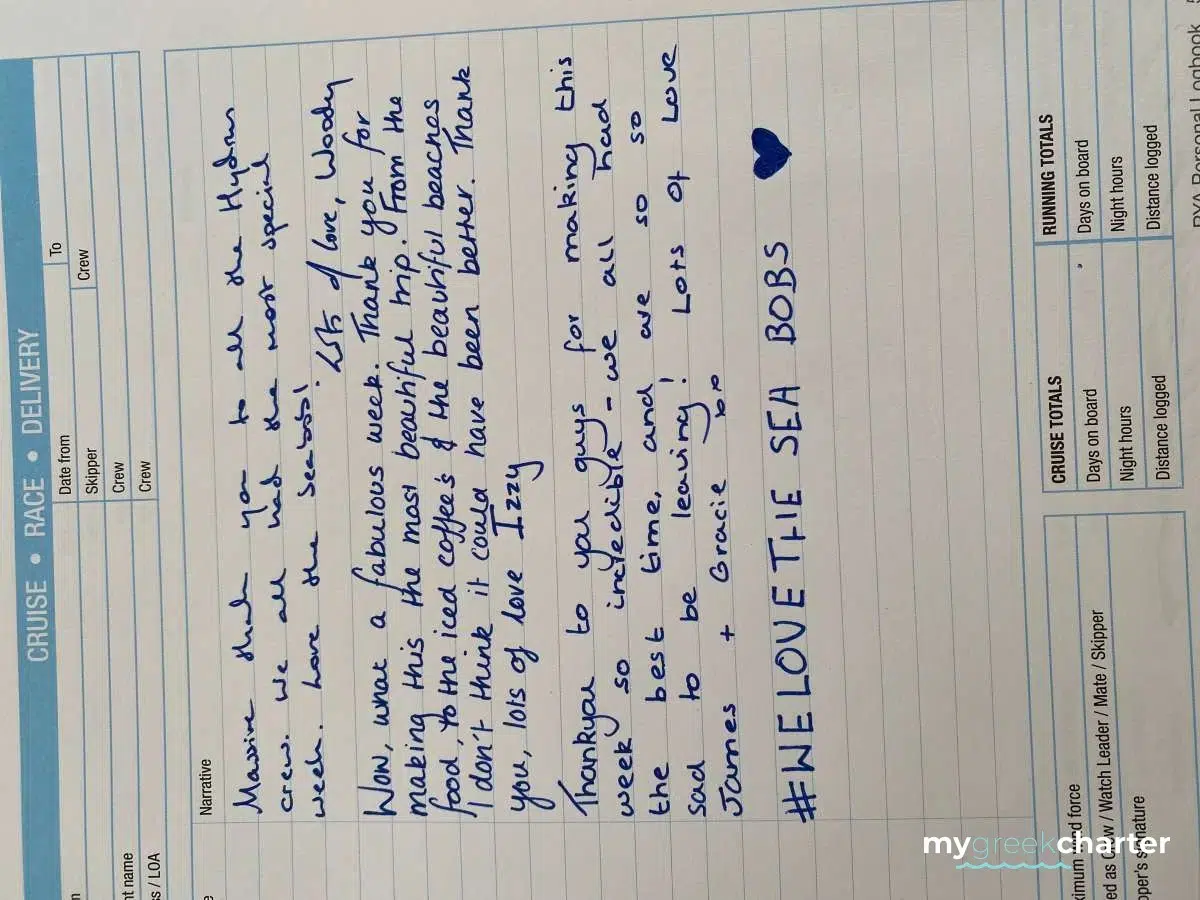 CRUISE • RACE • DELIVERY
Date from
To
Skipper
Crew
Crew
Crew
nt name
s / LOA
Narrative
Massive thank you to all the Hydrus
crew. We all had the most special
week. Love the Seabobs!
Lots of love, Woody
Wow, what a fabulous week. Thank you for
making this the most beautiful trip. From the
food, to the iced coffees & the beautiful beaches
I don't think it could have been better. Thank
you, lots of love Izzy
Thankyou to you guys for making this
week so incredible - we all had
the best time, and are so so
sad to be leaving! Lots of Love
James + Gracie xox
#WE LOVE THE SEA BOBS
CRUISE TOTALS
Days on board
Night hours
Distance logged
RUNNING TOTALS
Days on board
Night hours
Distance logged
ximum wind force
ed as Crew / Watch Leader / Mate / Skipper
pper's signature
RYA Personal Logbook
mygreekcharter